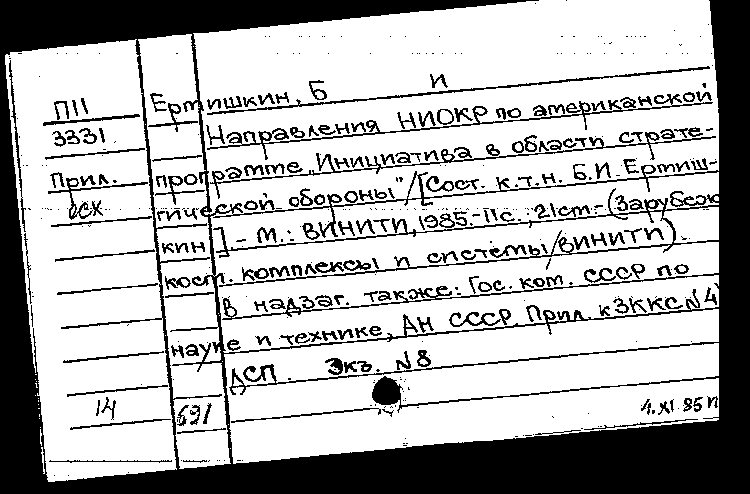 П11 Ертишкин, Б И
3331 Направления НИОКР по американской
Прил. программе „Инициатива в области страте-
осх гической обороны"/[Сост. к.т.н. Б.И. Ертиш-
кин].- М.: ВИНИТИ, 1985.-11с.; 21см.-(Зарубеж
косм. комплексы и системы/ВИНИТИ).
В надзаг. также: Гос. ком. СССР по
науке и технике, АН СССР. Прил. к ЗККС №4
ДСП. Экз. №8
14 691
4.XI.85 п